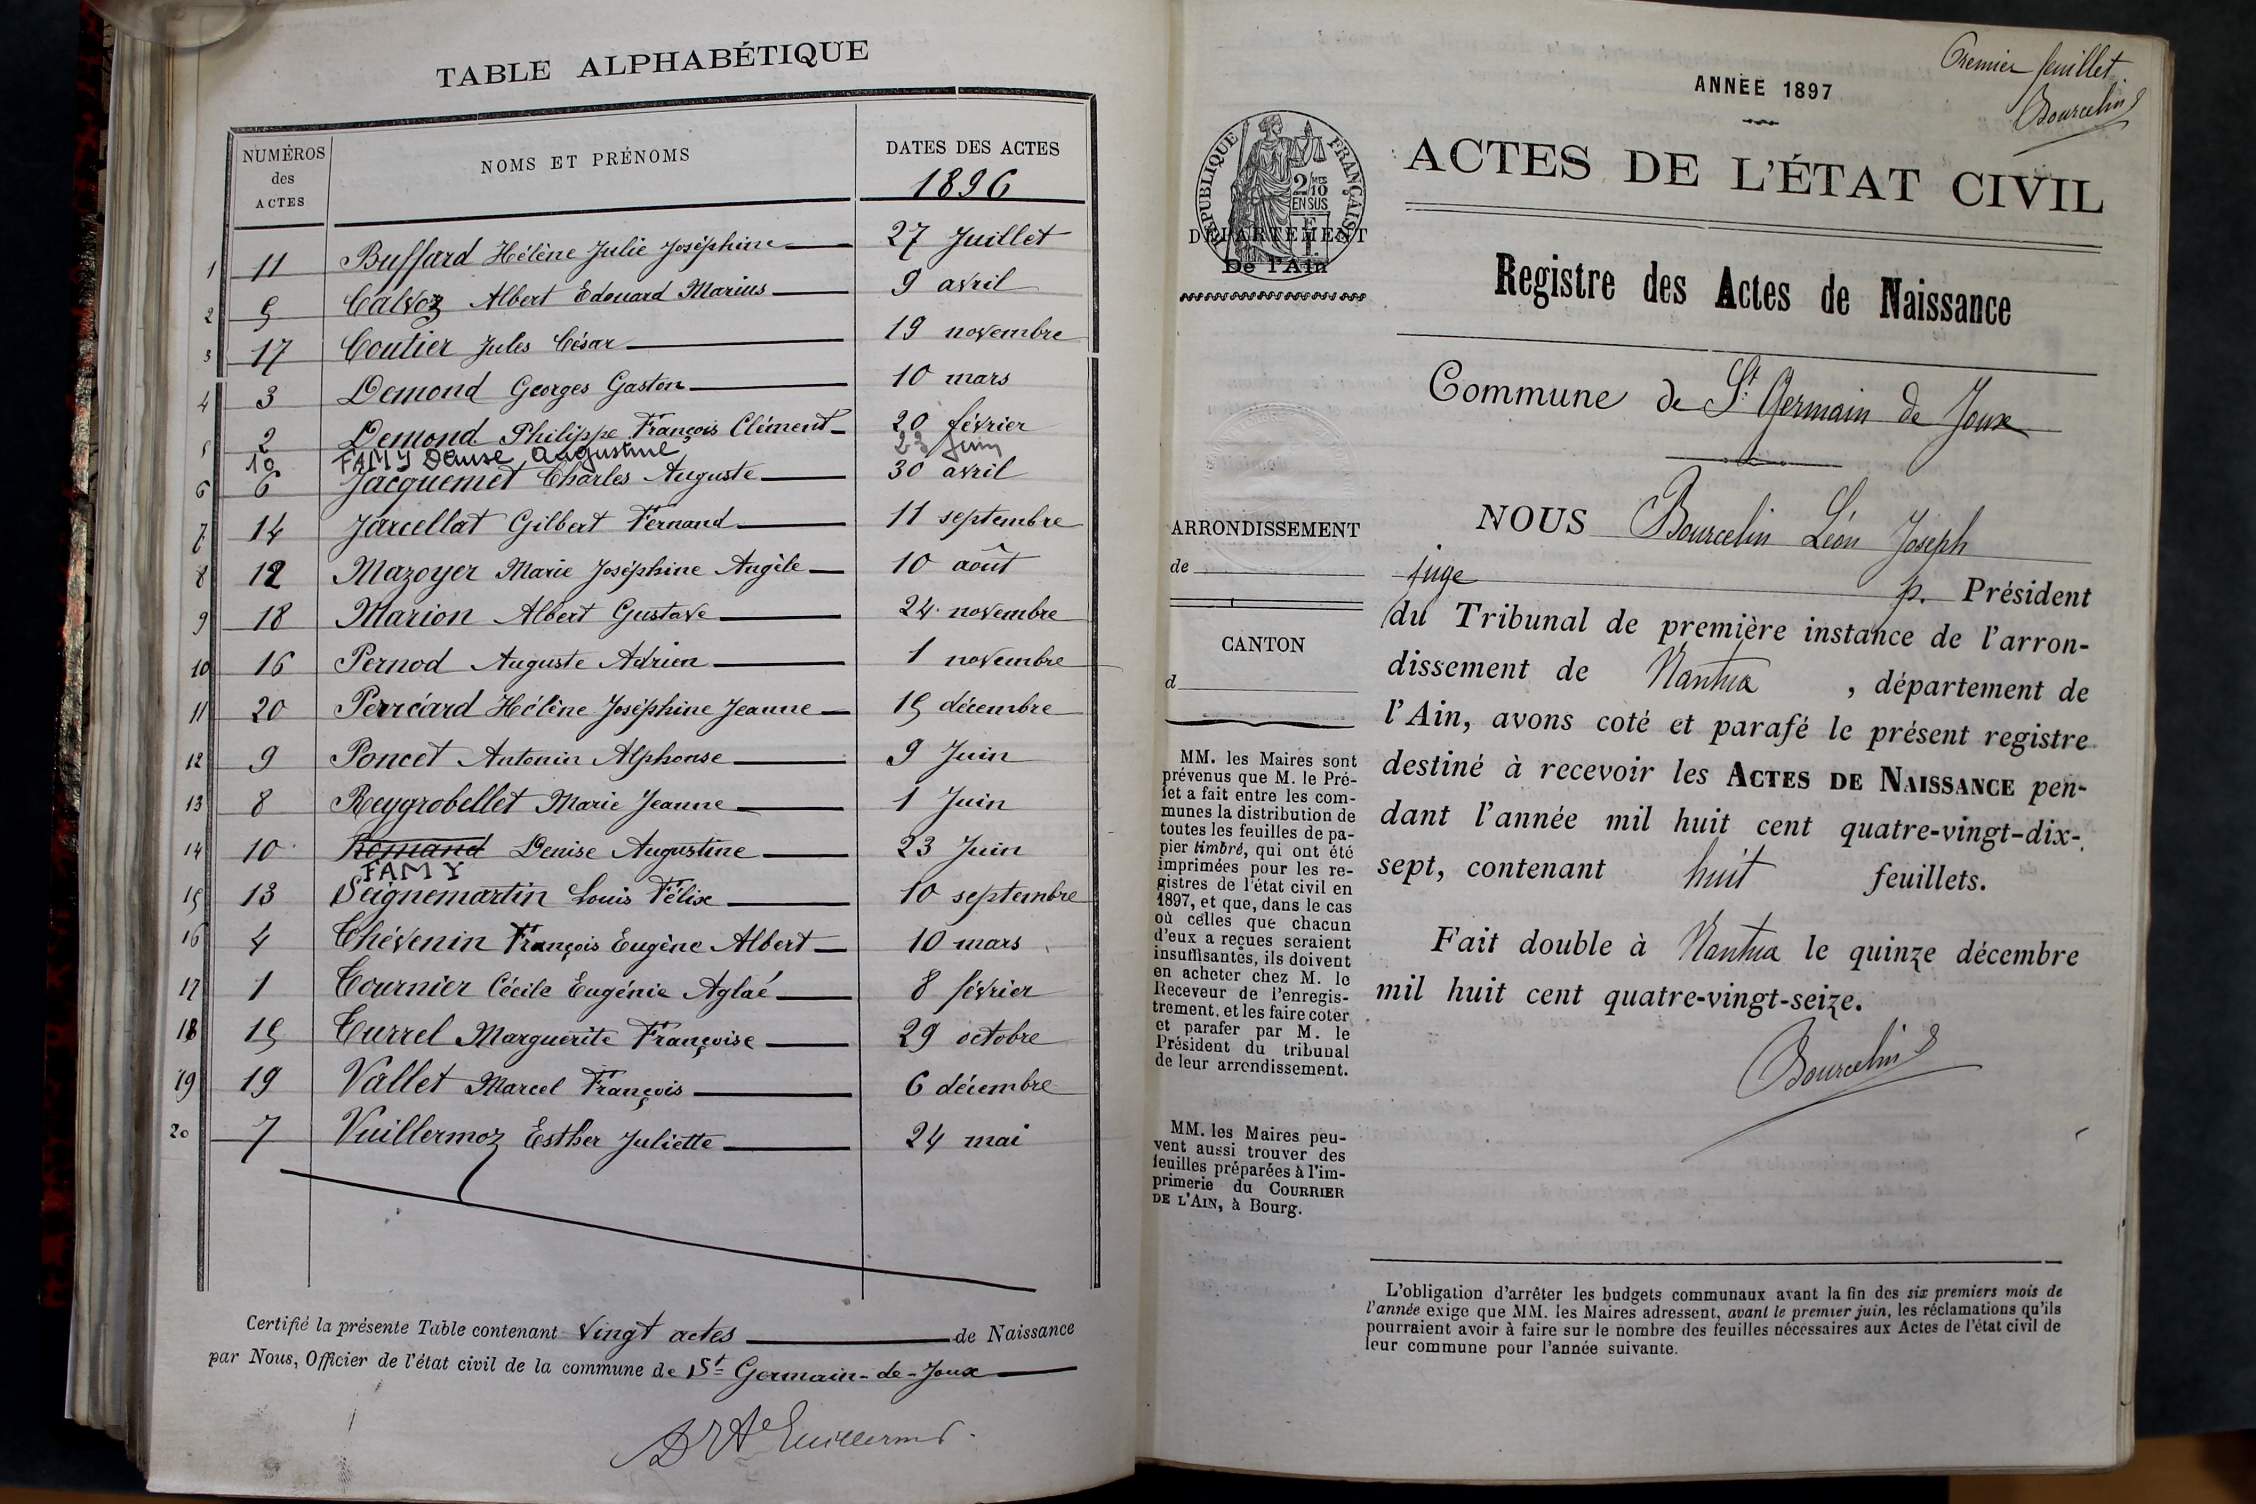 TABLE ALPHABÉTIQUE
NUMÉROS des ACTES
NOMS ET PRÉNOMS
DATES DES ACTES
1896
1 11 Buffard Hélène Julie Joséphine 27 Juillet
2 5 Calvoz Albert Edouard Marius 9 avril
3 17 Coutier Jules César 19 novembre
4 3 Demond Georges Gaston 10 mars
5 2 Demond Philippe François Clément 20 février
10 FAMY Denise Augustine 23 Juin
6 6 Jacquemet Charles Auguste 30 avril
7 14 Jarcellat Gilbert Fernand 11 septembre
8 12 Mazoyer Marie Joséphine Angèle 10 août
9 18 Marion Albert Gustave 24 novembre
10 16 Pernod Auguste Adrien 1 novembre
11 20 Perréard Hélène Joséphine Jeanne 15 décembre
12 9 Poncet Antonin Alphonse 9 Juin
13 8 Reygrobellet Marie Jeanne 1 Juin
14 10 Romand Denise Augustine 23 Juin
FAMY
15 13 Seignemartin Louis Félix 10 septembre
16 4 Thévenin François Eugène Albert 10 mars
17 1 Tournier Cécile Eugénie Aglaé 8 février
18 15 Turrel Marguerite Françoise 29 octobre
19 19 Vallet Marcel François 6 décembre
20 7 Vuillermoz Esther Juliette 24 mai
Certifié la présente Table contenant vingt actes de Naissance
par Nous, Officier de l'état civil de la commune de St Germain-de-Joux
Premier feuillet.
Bourcelin
ANNÉE 1897
ACTES DE L'ÉTAT CIVIL
RÉPUBLIQUE FRANÇAISE
2/10 MES
EN SUS
DÉPARTEMENT
De l'Ain
Registre des Actes de Naissance
Commune de St. Germain de Joux
NOUS Bourcelin Léon Joseph
juge p. Président
du Tribunal de première instance de l'arron-
dissement de Nantua, département de
l'Ain, avons coté et parafé le présent registre
destiné à recevoir les ACTES DE NAISSANCE pen-
dant l'année mil huit cent quatre-vingt-dix-
sept, contenant huit feuillets.
Fait double à Nantua le quinze décembre
mil huit cent quatre-vingt-seize.
Bourcelin
ARRONDISSEMENT
de
CANTON
d
MM. les Maires sont
prévenus que M. le Pré-
fet a fait entre les com-
munes la distribution de
toutes les feuilles de pa-
pier timbré, qui ont été
imprimées pour les re-
gistres de l'état civil en
1897, et que, dans le cas
où celles que chacun
d'eux a reçues seraient
insuffisantes, ils doivent
en acheter chez M. le
Receveur de l'enregis-
trement, et les faire coter
et parafer par M. le
Président du tribunal
de leur arrondissement.
MM. les Maires peu-
vent aussi trouver des
feuilles préparées à l'im-
primerie du COURRIER
DE L'AIN, à Bourg.
L'obligation d'arrêter les budgets communaux avant la fin des six premiers mois de
l'année exige que MM. les Maires adressent, avant le premier juin, les réclamations qu'ils
pourraient avoir à faire sur le nombre des feuilles nécessaires aux Actes de l'état civil de
leur commune pour l'année suivante.